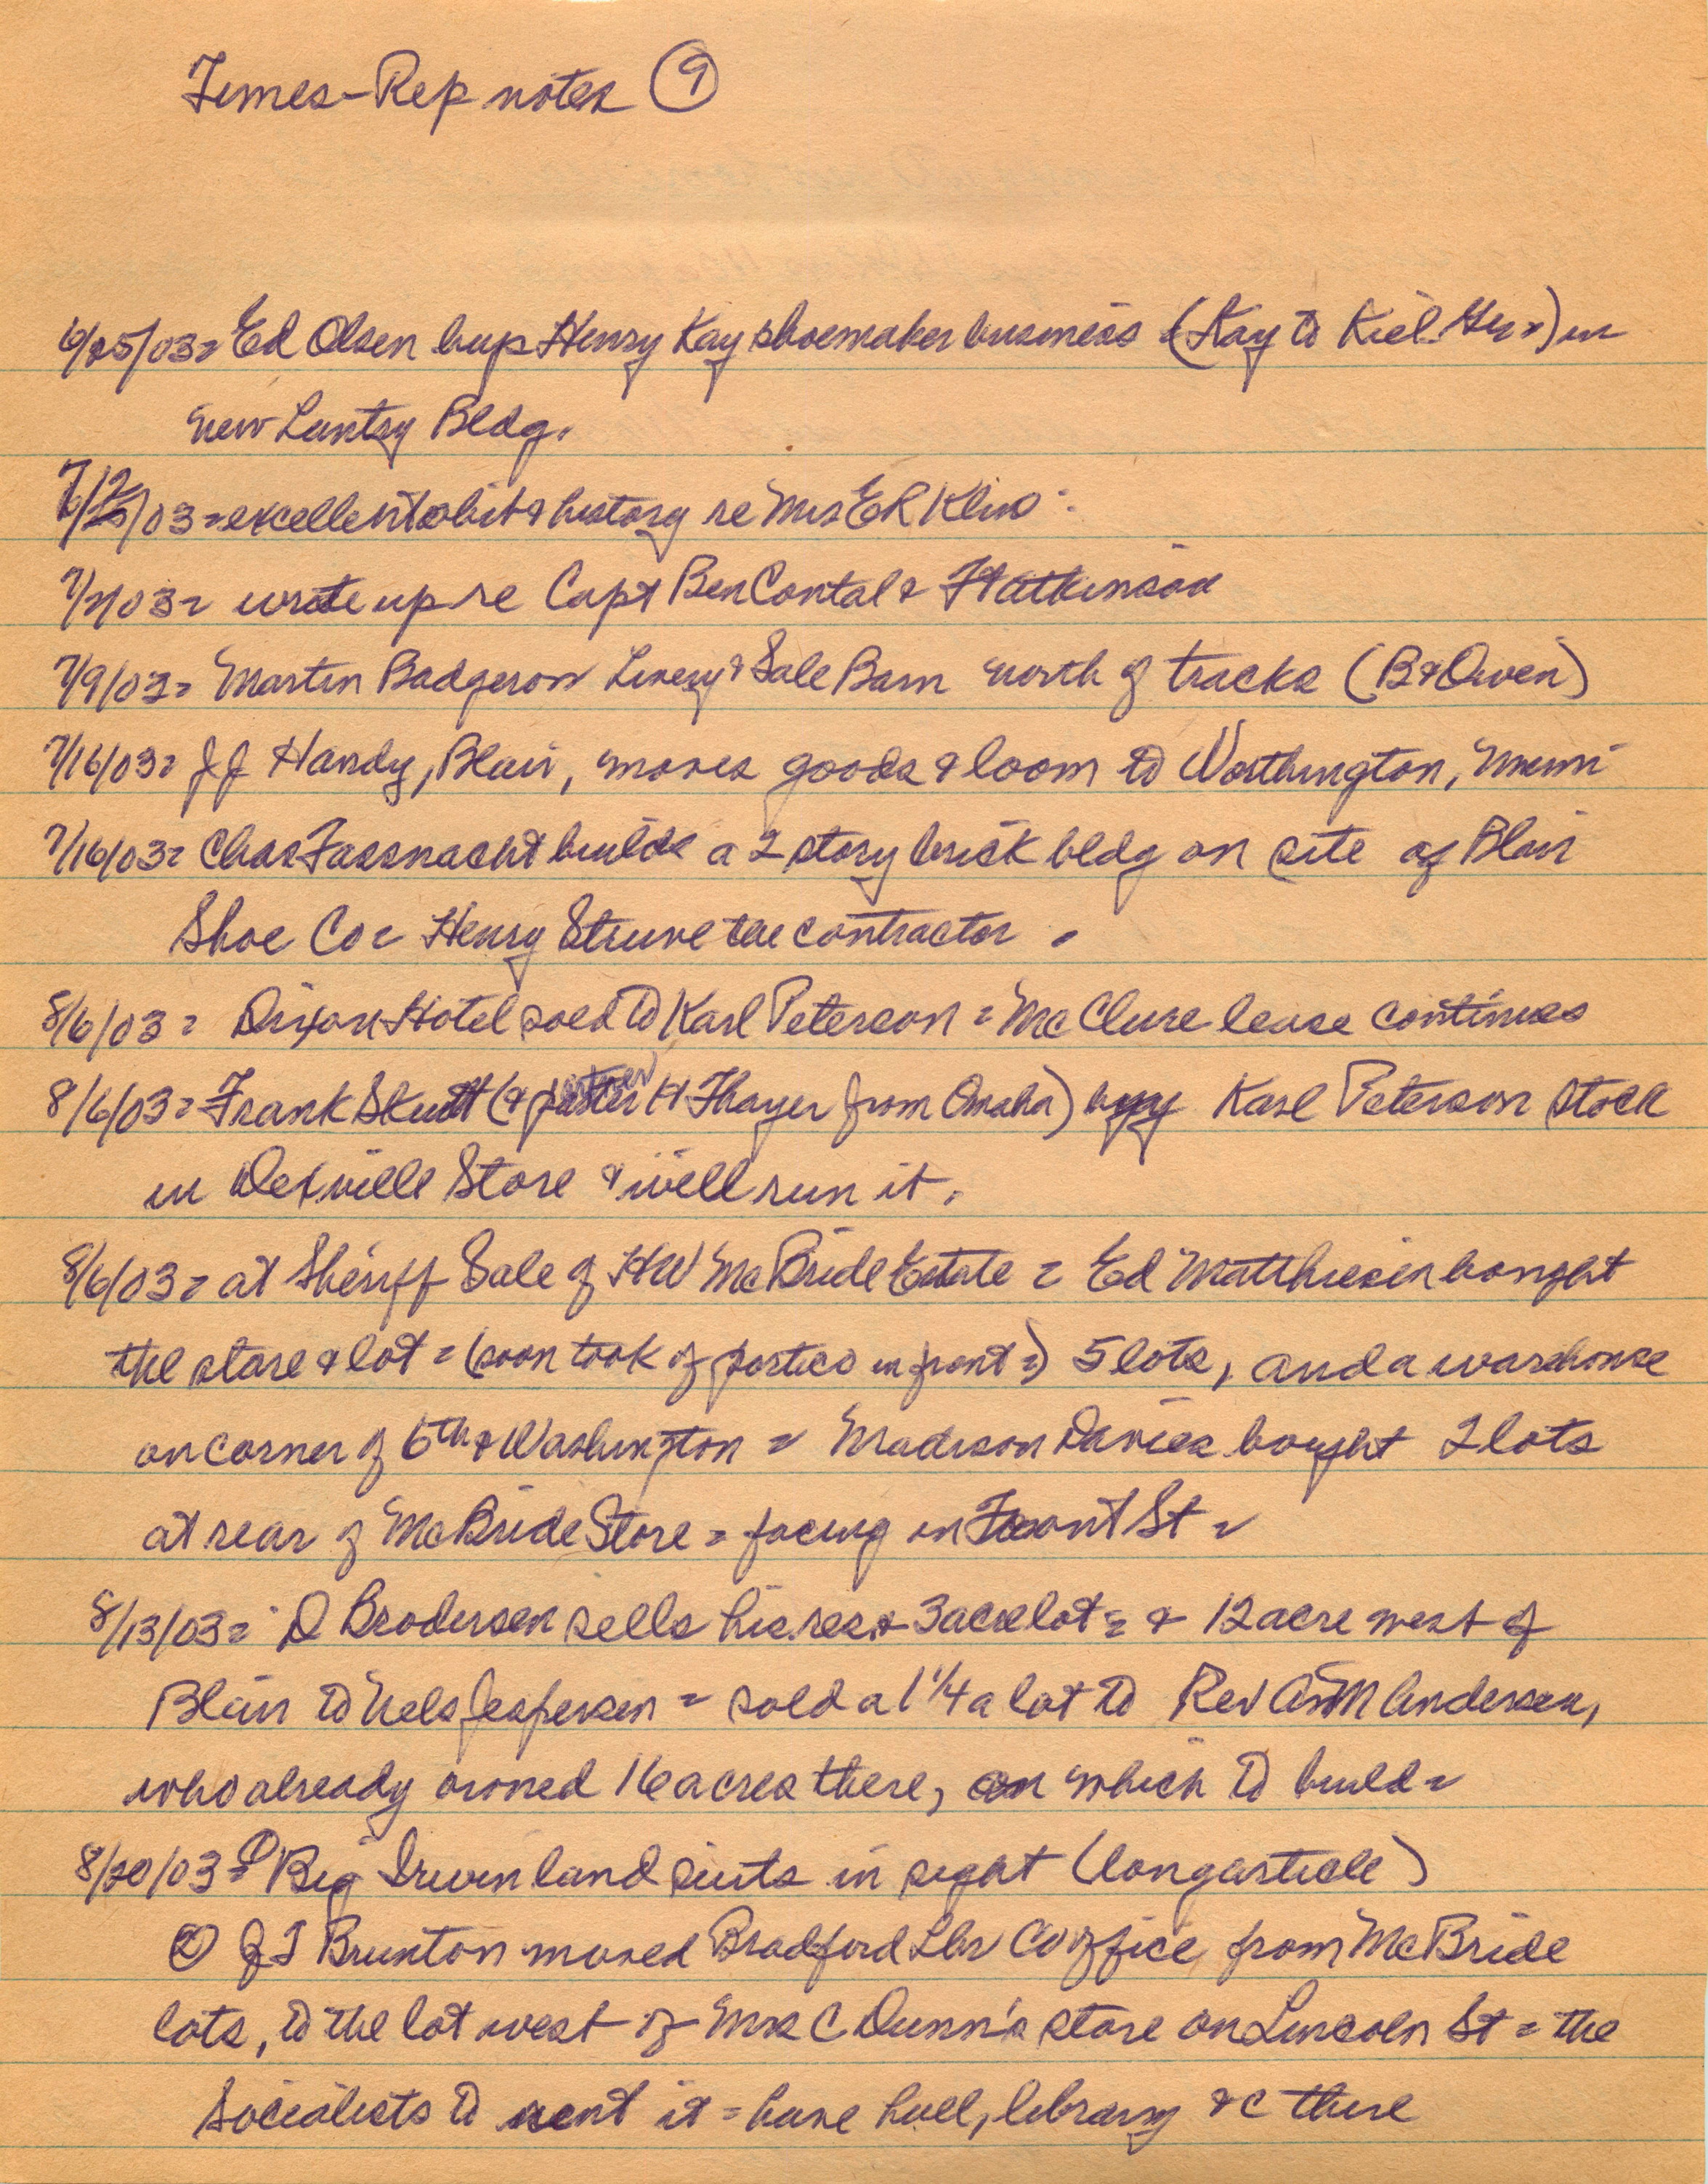 Times-Rep notes 9
6/25/03= Ed Olsen buys Henry Kay shoemaker business (Kay to Kiel Ger=) in
new Lantry Bldg.
7/2/03= excellent obit & history re Mrs E R
7/2/03= write up re Capt Ben Contal & H Atkinson
7/9/03= Martin Badgerow Livery & Sale Barn north of tracks (B & Owen)
7/16/03= J J Handy, Blair, moves goods & loom to Worthington, Minn
7/16/03= Chas Fassnacht builds a 2 story brick bldg on site of Blair
Shoe Co = Henry Struve the contractor.
8/6/03= Dixon Hotel sold to Karl Peterson = McClure lease continues
8/6/03= Frank Skutt (& partner H Thayer from Omaha) buy Karl Peterson stock
in Dexville Store & will run it.
8/6/03= at Sheriff Sale of HW McBride Estate = Ed Matthiesen bought
the store & lot = (soon took of portico in front =) 5 lots, and a warehouse
on corner of 6th & Washington = Madison Davies bought 2 lots
at rear of McBride Store = facing on Front St =
8/13/03= D Brodersen sells his res & 3 acre lot = & 12 acre west of
Blair to Nels Jespersen = sold a 1 1/4 a lot to Rev A M Andersen,
who already owned 16 acres there, on which to build =
8/20/03= ① Big Irwin land suits in sight (long article)
② J T Brunton moved Bradford Lbr Co office from McBride
lots, to the lot west of Mrs C Dunn's store on Lincoln St = the
Socialists to rent it = have hall, library &c there